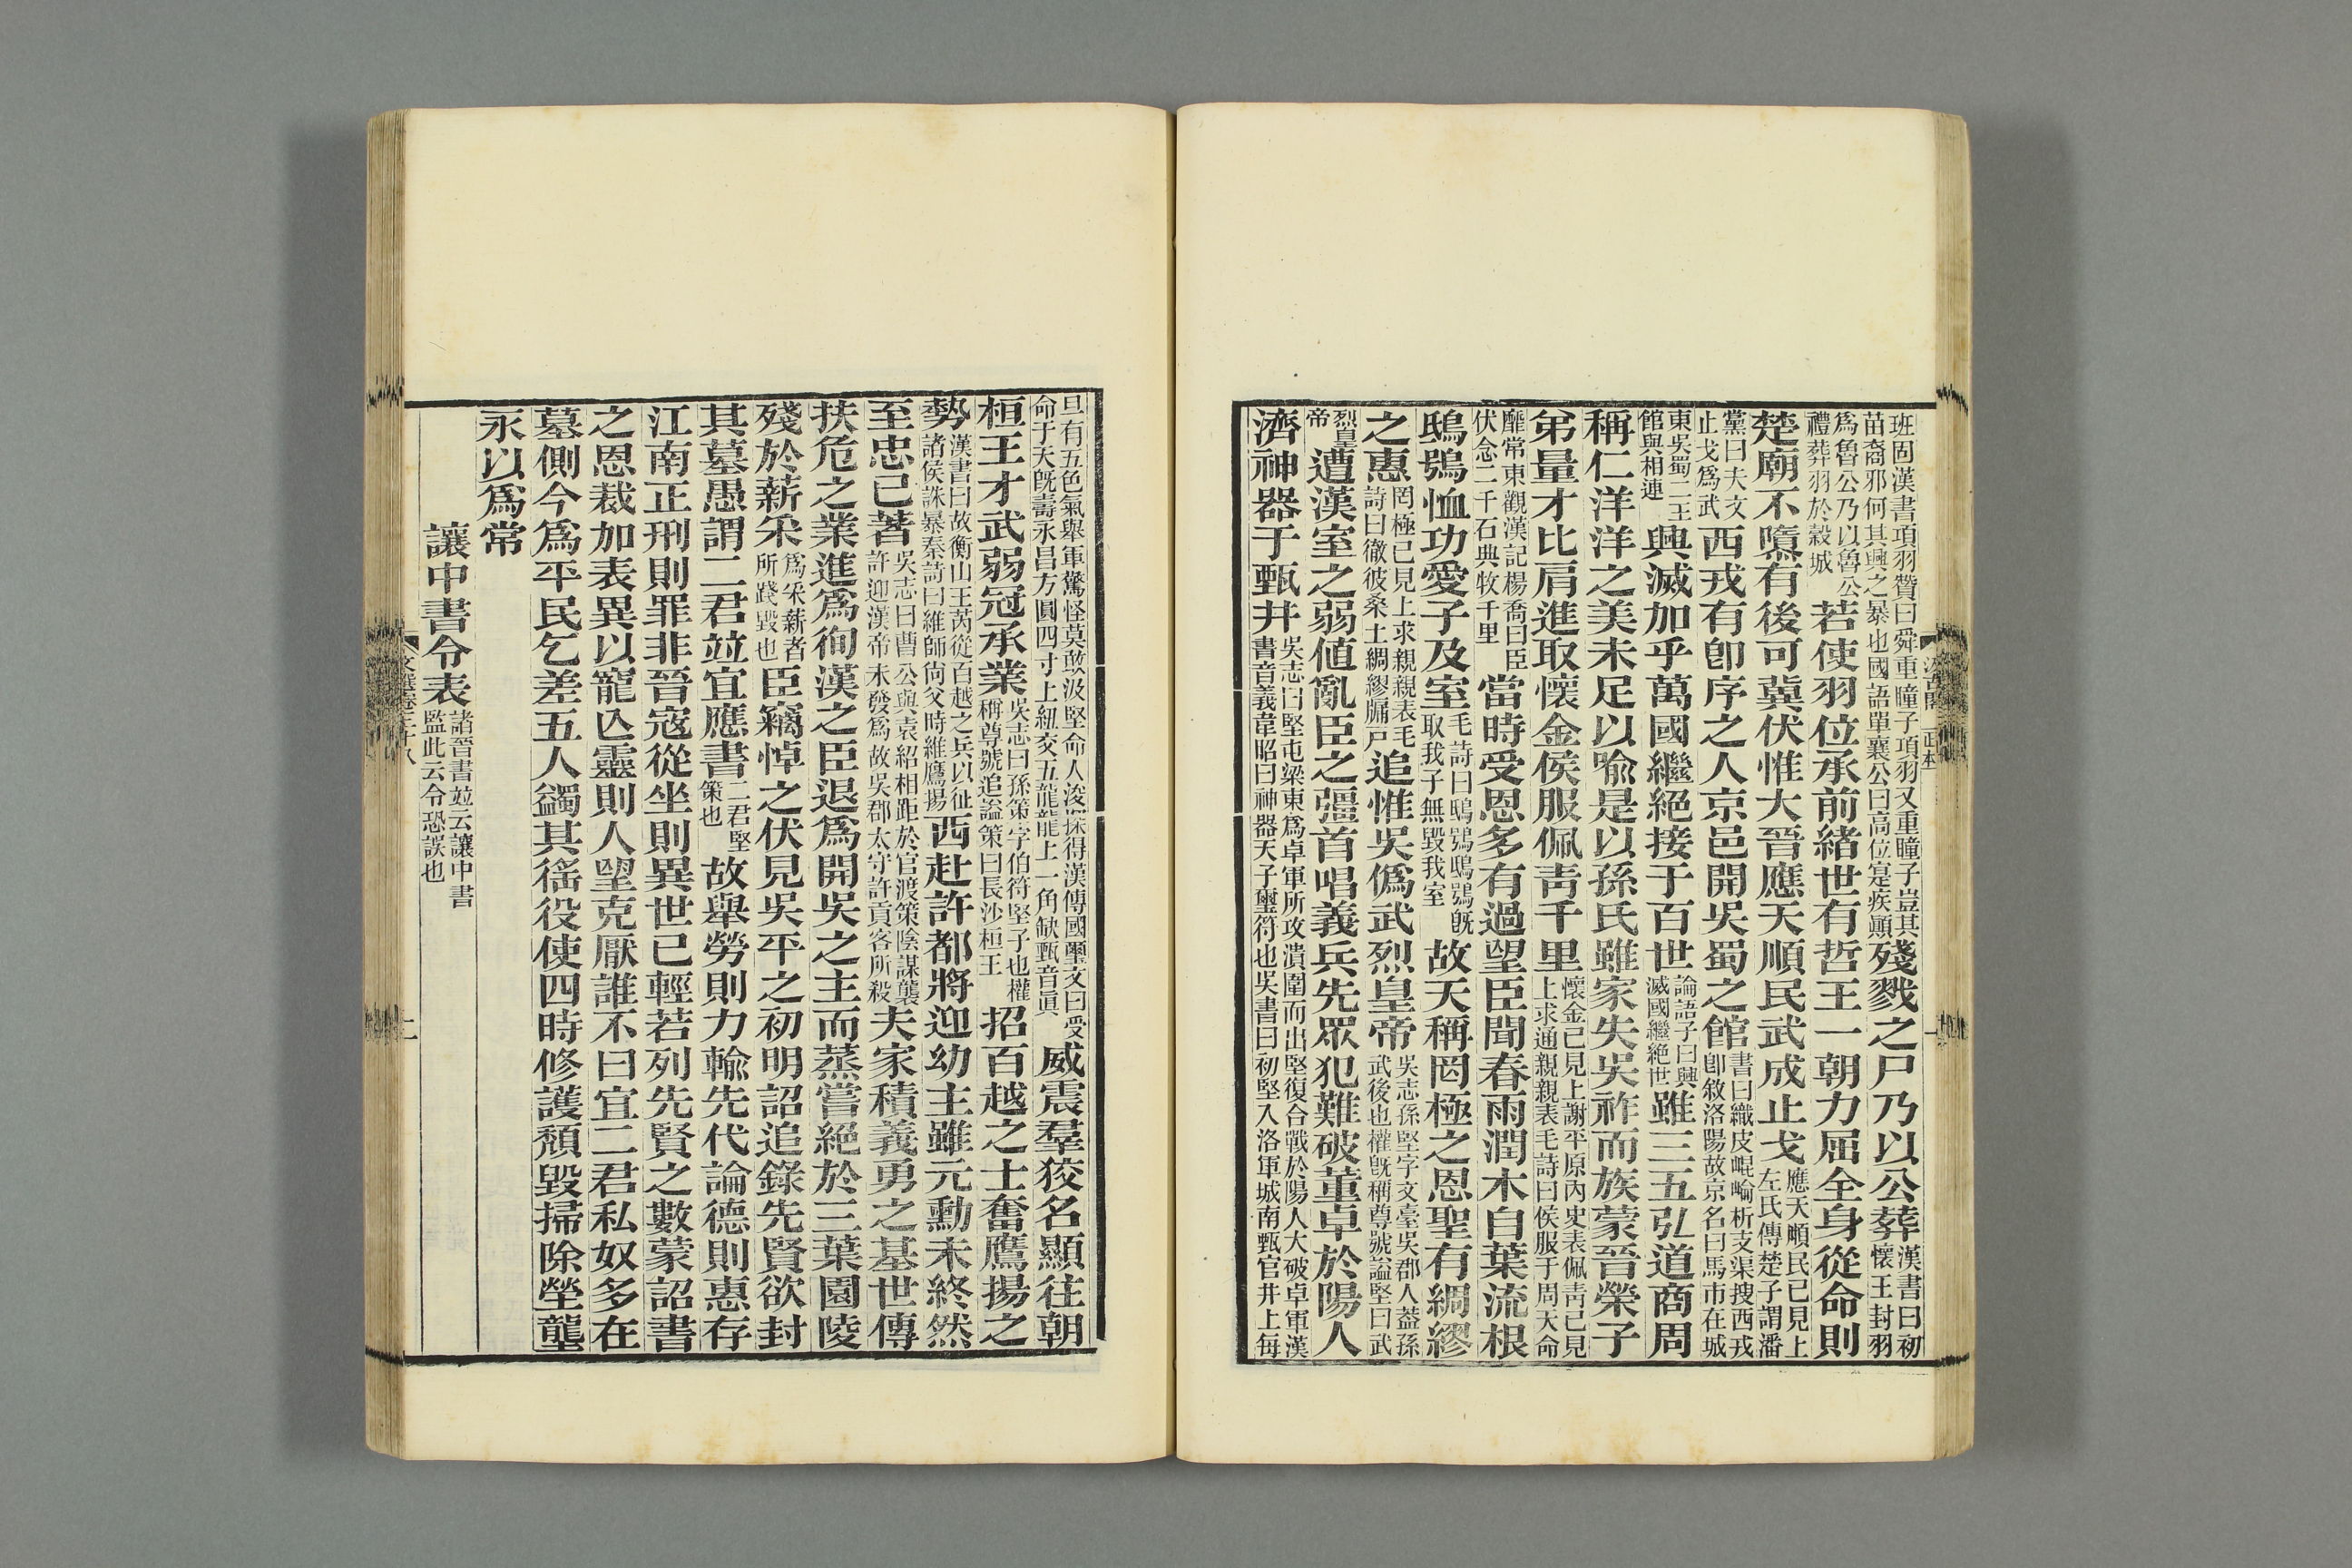 班固漢書項羽贊曰舜重瞳子項羽又重瞳子豈其
苗裔邪何其興之暴也國語單襄公曰高位寔疾顚
殘戮之尸乃以公葬
漢書曰初
懷王封羽
爲魯公乃以魯公
禮葬羽於穀城
若使羽位承前緒世有哲王一朝力屈全身從命則
楚廟不隳有後可冀伏惟大晉應天順民武成止戈
應天順民已見上
左氏傳楚子謂潘
黨曰夫文
止戈爲武
西戎有卽序之人京邑開吳蜀之館
書曰織皮崐崘析支渠搜西戎
卽敘洛陽故京名曰馬市在城
東吳蜀二王
館與相連
興滅加乎萬國繼絕接于百世
論語子曰興
滅國繼絶世
雖三五弘道商周
稱仁洋洋之美未足以喻是以孫氏雖家失吳祚而族蒙晉榮子
弟量才比肩進取懷金侯服佩靑千里
懷金已見上謝平原內史表佩靑已見
上求通親親表毛詩曰侯服于周天命
靡常東觀漢記楊喬曰臣
伏念二千石典牧千里
當時受恩多有過望臣聞春雨潤木自葉流根
鴟鴞恤功愛子及室
毛詩曰鴟鴞鴟鴞旣
取我子無毀我室
故天稱罔極之恩聖有綢繆
之惠
罔極已見上求親親表毛
詩曰徹彼桑土綢繆牖戸
追惟吳僞武烈皇帝
吳志孫堅字文臺吳郡人葢孫
武後也權旣稱尊號謚堅曰武
烈皇
帝
遭漢室之弱値亂臣之彊首唱義兵先眾犯難破董卓於陽人
濟神器于甄井
吳志曰堅屯梁東爲卓軍所攻潰圍而出堅復合戰於陽人大破卓軍漢
書音義韋昭曰神器天子璽符也吳書曰初堅入洛軍城南甄官井上每
旦有五色氣舉軍驚怪莫敢汲堅命人浚探得漢傳國璽文曰受
命于天旣壽永昌方圓四寸上紐交五龍龍上一角缺甄音眞
威震羣狡名顯往朝
桓王才武弱冠承業
吳志曰孫策字伯符堅子也權
稱尊號追謚策曰長沙桓王
招百越之士奮鷹揚之
勢
漢書曰故衡山王芮從百越之兵以征
諸侯誅暴秦詩曰維師尙父時維鷹揚
西赴許都將迎幼主雖元勳未終然
至忠已著
吳志曰曹公與袁紹相距於官渡策陰謀襲
許迎漢帝未發爲故吳郡太守許貢客所殺
夫家積義勇之基世傳
扶危之業進爲徇漢之臣退爲開吳之主而蒸嘗絕於三葉園陵
殘於薪采
爲采薪者
所踐毀也
臣竊悼之伏見吳平之初明詔追錄先賢欲封
其墓愚謂二君竝宜應書
二君堅
策也
故舉勞則力輸先代論德則惠存
江南正刑則罪非晉寇從坐則異世已輕若列先賢之數蒙詔書
之恩裁加表異以寵亾靈則人望克厭誰不曰宜二君私奴多在
墓側今爲平民乞差五人蠲其徭役使四時修護頹毀掃除塋壠
永以爲常
讓中書令表
諸晉書竝云讓中書
監此云令恐誤也